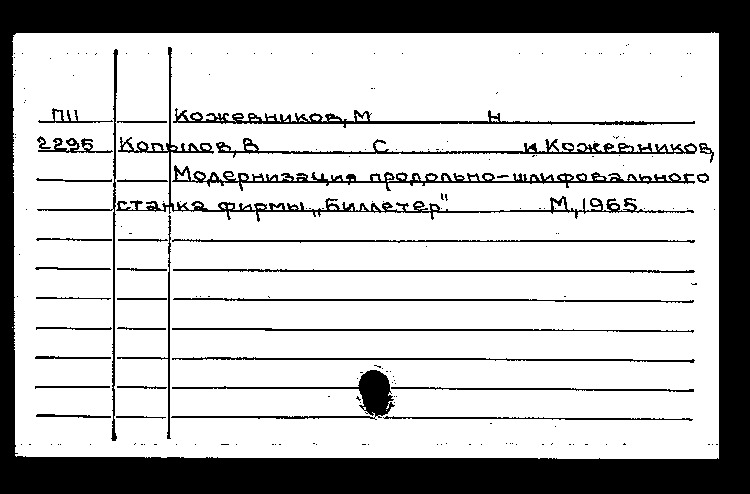 П11 Кожевников, М Н
2295 Копылов, В С и Кожевников,
Модернизация продольно-шлифовального
станка фирмы „Биллетер" М., 1965.